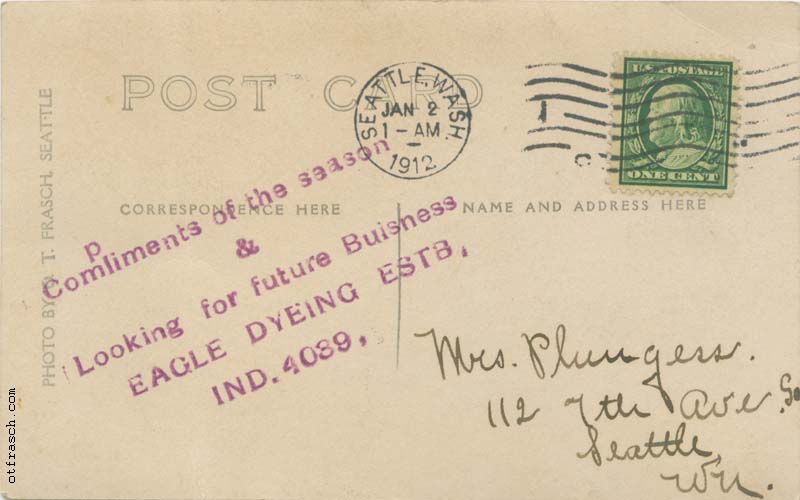 POST CARD
SEATTLE, WASH.
JAN 2
1-AM
1912
U.S. POSTAGE
ONE CENT
CORRESPONDENCE HERE
NAME AND ADDRESS HERE
PHOTO BY O. T. FRASCH, SEATTLE
p
Comliments of the season
&
Looking for future Buisness
EAGLE DYEING ESTB,
IND. 4089,
Mrs. Plungess.
112 7th Ave. So
Seattle,
Wn.
otfrasch.com